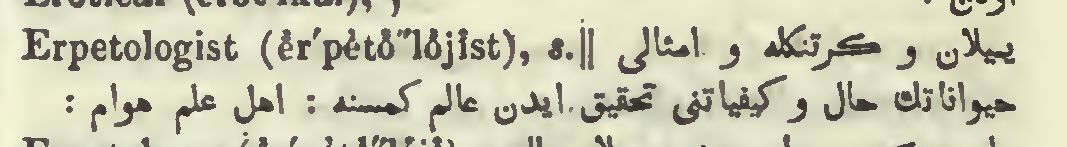 Erpetologist (ĕr′pĕtŏ″lŏjĭst), s.‖ ییلان و کرتنکله و امثالی
حیواناتك حال و کیفیاتنی تحقیق ایدن عالم کمسنه : اهل علم هوام :